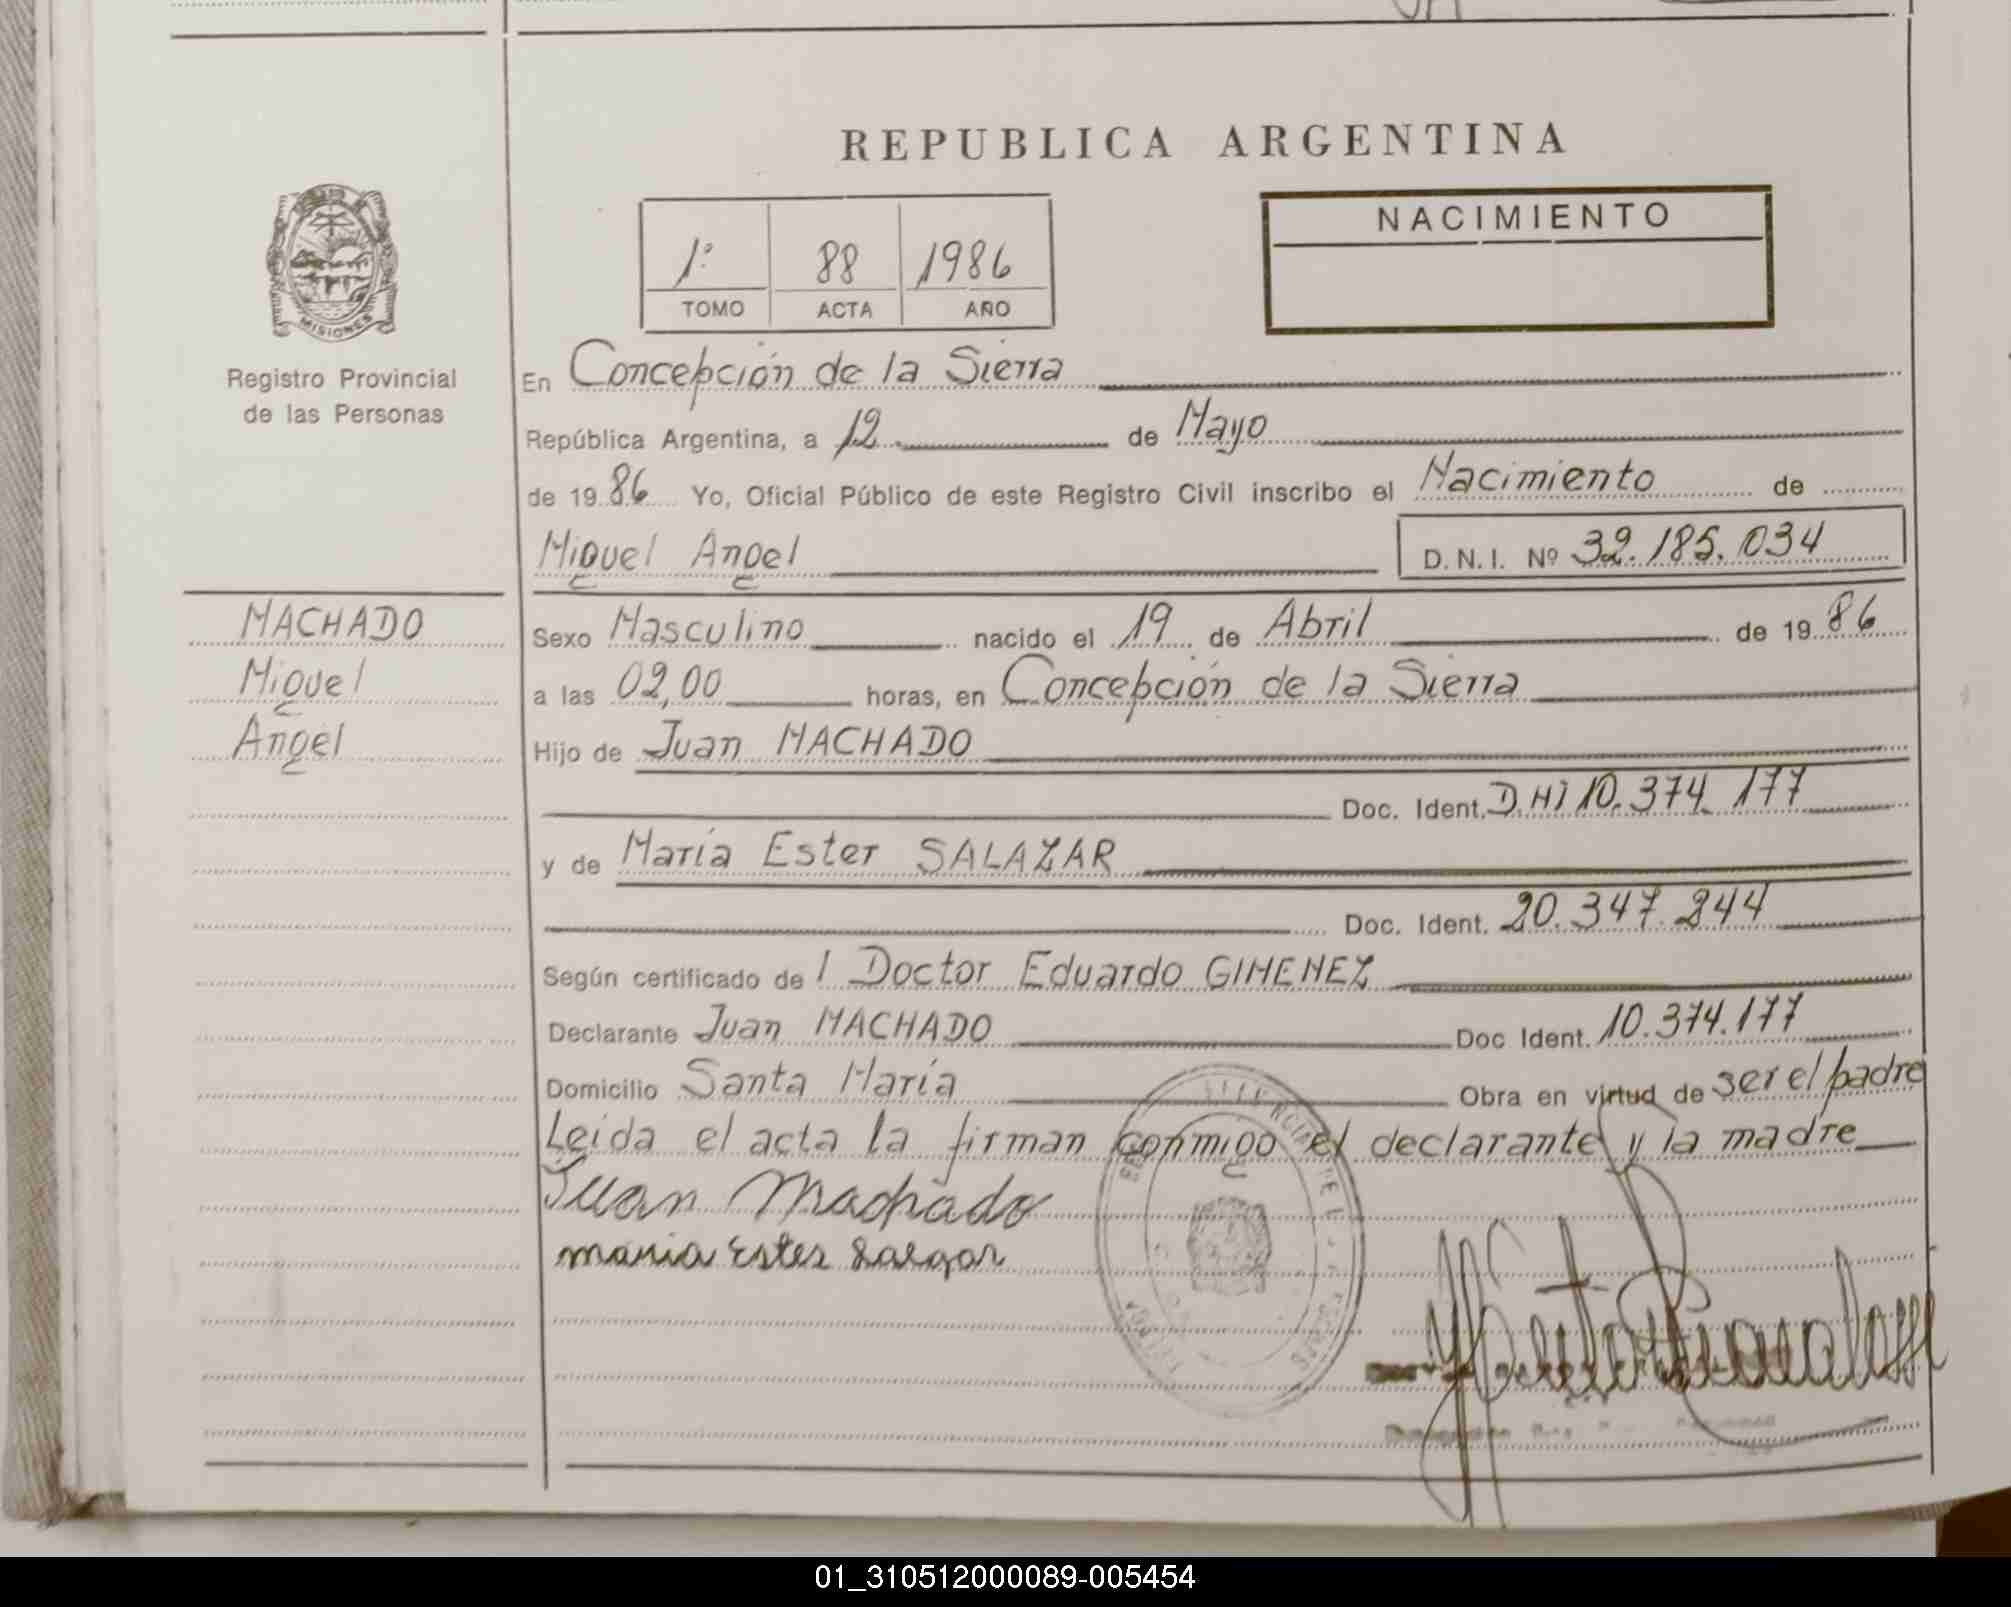 REPUBLICA ARGENTINA
1º 88 1986
TOMO ACTA AÑO
NACIMIENTO
MISIONES
Registro Provincial
de las Personas
En Concepción de la Sierra
República Argentina, a 12 de Mayo
de 1986 Yo, Oficial Público de este Registro Civil inscribo el Nacimiento de
Miguel Angel D.N.I. Nº 32.185.034
MACHADO
Miguel
Angel
Sexo Masculino nacido el 19 de Abril de 1986
a las 02,00 horas, en Concepción de la Sierra
Hijo de Juan MACHADO
Doc. Ident. DNI 10.374.177
y de María Ester SALAZAR
Doc. Ident. 20.347.244
Según certificado de l Doctor Eduardo GIMENEZ
Declarante Juan MACHADO Doc Ident. 10.374.177
Domicilio Santa María Obra en virtud de ser el padre
Leida el acta la firman conmigo el declarante y la madre
Juan Machado
maria Ester
01_310512000089-005454